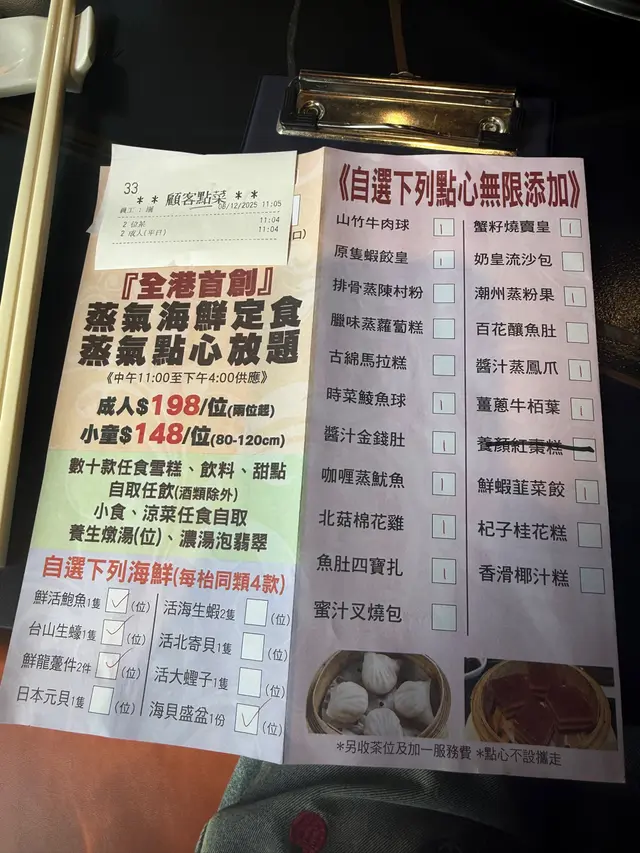 33
** 顧客點菜 **
員工：강
08/12/2025 11:05
2 位茶 11:04
2 成人(平日) 11:04
口)
『全港首創』
蒸氣海鮮定食
蒸氣點心放題
《中午11:00至下午4:00供應》
成人$198/位(兩位起)
小童$148/位(80-120cm)
數十款任食雪糕、飲料、甜點
自取任飲(酒類除外)
小食、涼菜任食自取
養生燉湯(位)、濃湯泡翡翠
自選下列海鮮(每枱同類4款)
鮮活鮑魚1隻 (位)
台山生蠔1隻 (位)
鮮龍躉件2件 (位)
日本元貝1隻 (位)
活海生蝦2隻 (位)
活北寄貝1隻 (位)
活大蟶子1隻 (位)
海貝盛盆1份 (位)
《自選下列點心無限添加》
山竹牛肉球 1
原隻蝦餃皇 1
排骨蒸陳村粉 1
臘味蒸蘿蔔糕 1
古綿馬拉糕
時菜鯪魚球 1
醬汁金錢肚 1
咖喱蒸魷魚 1
北菇棉花雞 1
魚肚四寶扎 1
蜜汁叉燒包
蟹籽燒賣皇 1
奶皇流沙包
潮州蒸粉果 1
百花釀魚肚
醬汁蒸鳳爪 1
薑蔥牛栢葉 1
養顏紅棗糕
鮮蝦韮菜餃 1
杞子桂花糕
香滑椰汁糕
*另收茶位及加一服務費 *點心不設攜走